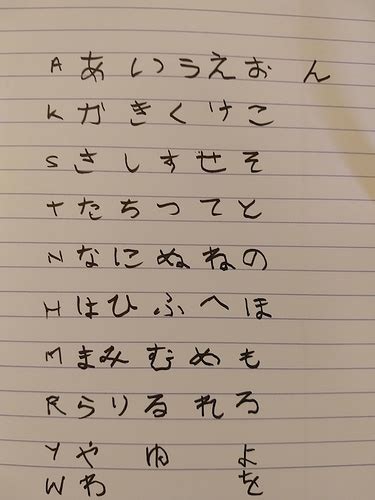 A あ い う え お ん
K が き く け こ
S さ し す せ そ
T た ち つ て と
N な に ぬ ね の
H は ひ ふ へ ほ
M ま み む め も
R ら り る れ ろ
Y や ゆ よ
W わ を